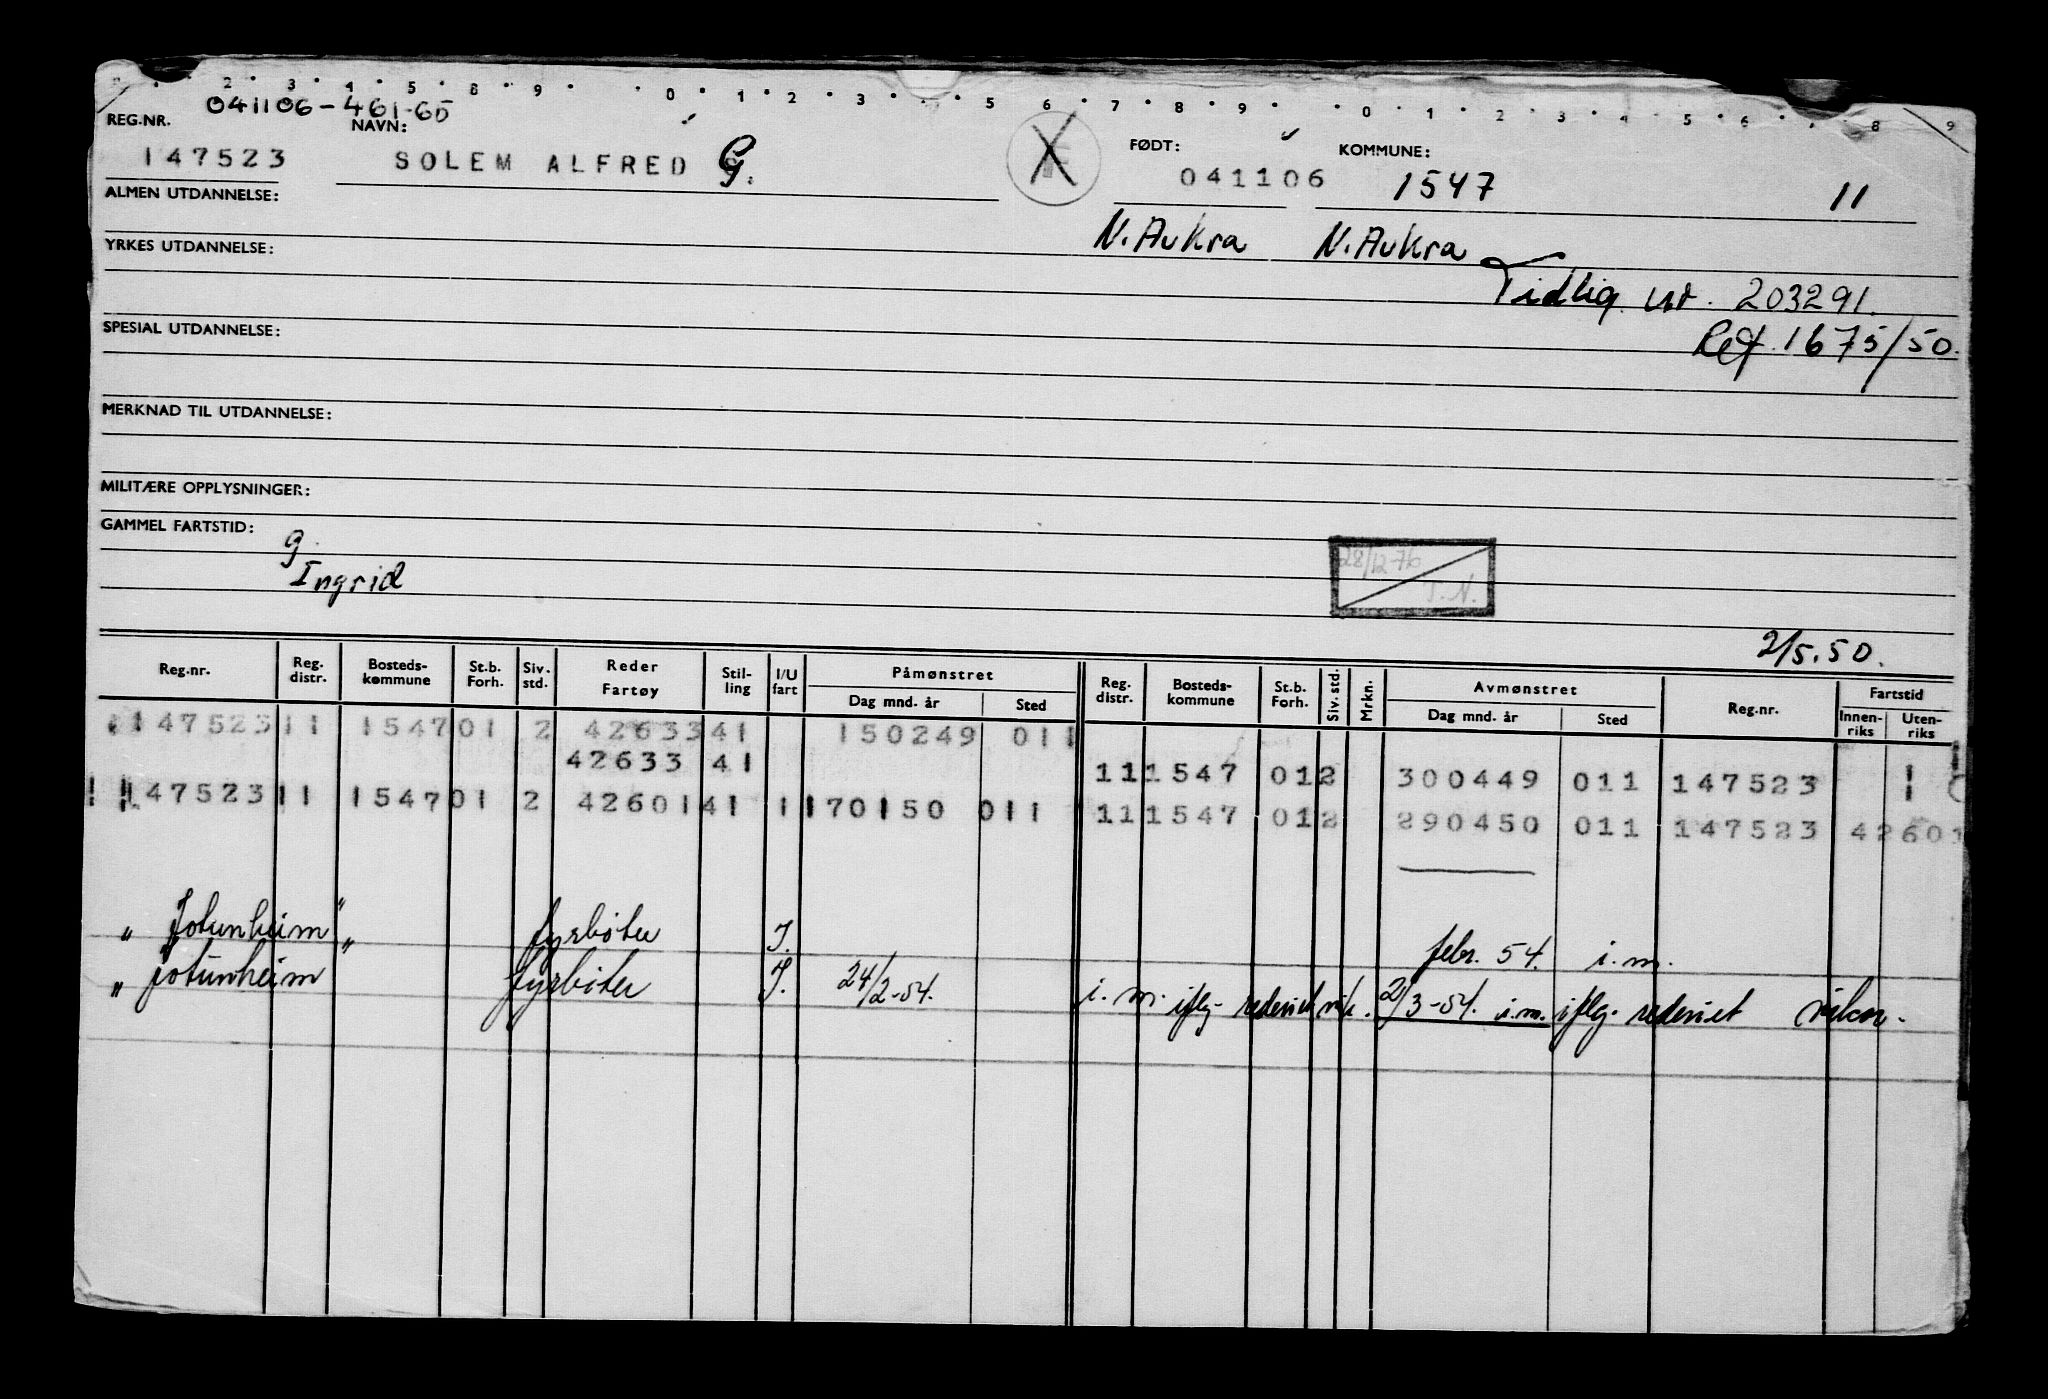 2 3 4 5 8 9 0 1 2 3 5 6 7 8 9 0 1 2 3 4 5 6 7 8 9
041106-461-65
REG.NR. NAVN: FØDT: KOMMUNE:
147523 SOLEM ALFRED G. 041106 1547 11
ALMEN UTDANNELSE:
N. Aukra N. Aukra
YRKES UTDANNELSE:
Tidlig. nr. 203291.
SPESIAL UTDANNELSE:
Ref. 1675/50.
MERKNAD TIL UTDANNELSE:
MILITÆRE OPPLYSNINGER:
GAMMEL FARTSTID:
g.
Ingrid
28/12-76
T.N.
2/5.50.
Reg.nr. Reg. distr. Bosteds-kommune St.b. Forh. Siv. std. Reder Fartøy Stil-ling I/U fart Påmønstret Dag mnd. år Sted Reg. distr. Bosteds-kommune St.b. Forh. Siv. std. Mrkn. Avmønstret Dag mnd. år Sted Reg.nr. Fartstid Innen-riks Uten-riks
147523 11 1547 01 2 42633 41 150249 011
42633 41 11 1547 01 2 300449 011 147523
147523 11 1547 01 2 42601 41 1 170150 011 11 1547 01 2 290450 011 147523 42601
"Jotunheim" fyrbøter I. febr. 54. i.m.
"Jotunheim" fyrbøter I. 24/2-54. i.m. iflg. rederiet 2/3-54. i.m. iflg. rederiet